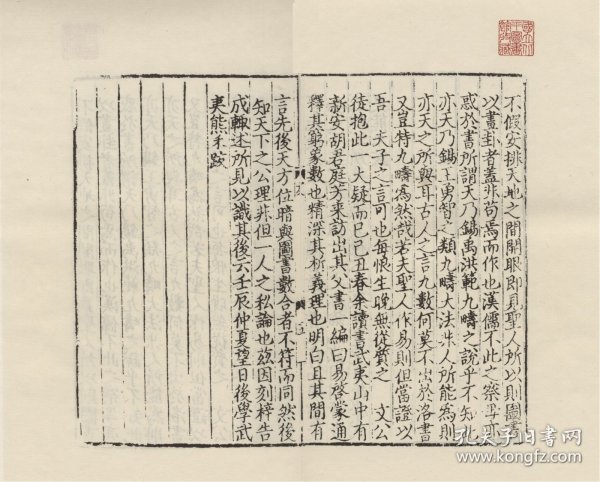 不假安排天地之間開眼即見聖人所以則圖
以畫卦者蓋非苟焉而作也漢儒不此之察乎亦
惑於書所謂天乃錫禹洪範九疇之說乎不知此
亦天乃錫王勇智之類九疇大法非人所能為則
亦天之所與耳古人之言九數何莫不出於洛書
又豈特九疇為然哉若夫聖人作易則但當證以
吾 夫子之言可也每恨生晚無從質之 文公
徒抱此一大疑而已己丑春余讀書武夷山中有
新安胡君庭芳來訪出其父書一編曰易啓蒙通
釋其窮象數也精深其析義理也明白且其間有
言先後天方位暗與圖書數合者不符而同然後
知天下之公理非但一人之私論也茲因刻梓告
成輒述所見以識其後云壬辰仲夏望日後學武
夷熊禾跋
孔夫子旧书网
www.kongfz.com